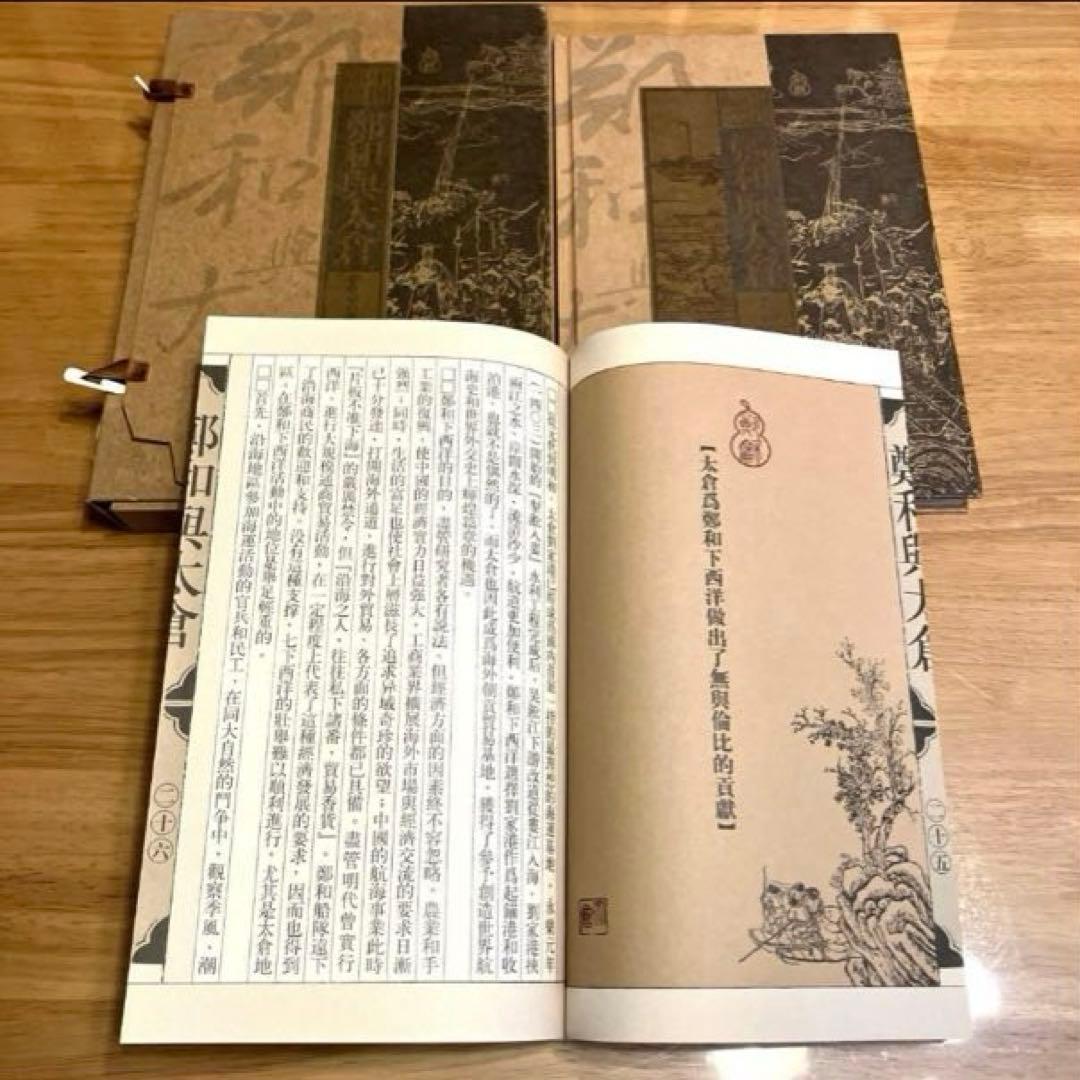 鄭和
與
大
鄭和與太倉
鄭和
與
鄭和與太倉
鄭和與太倉
二十五
【太倉爲鄭和下西洋做出了無與倫比的貢獻】
海運基地。永樂元年
水利工程完成后，吳淞江下游改道從婁江入海，劉家港挾
兩江之水，江闊水深，航道更加便利。鄭和下西洋選擇劉家港作爲起錨港和收
泊港，也就不是偶然的了。而太倉也因此成爲海外朝貢貿易基地，獲得了參予創造世界航
海史和世界外交史上輝煌篇章的機遇。
□□鄭和下西洋的目的，盡管研究者各有說法，但經濟方面的因素終不容忽略。農業和手
工業的復興，使中國的經濟實力日益强大，工商業界擴展海外市場與經濟交流的要求日漸
强烈；同時，生活的富足也使社會上層滋長了追求异域奇珍的欲望；中國的航海事業此時
已十分發達，打開海外通道，進行對外貿易，各方面的條件都已具備。盡管明代曾實行
『片板不准下海』的嚴厲禁令，但『沿海之人，往往私下諸番，貿易香貨』。鄭和船隊遠下
西洋，進行大規模通商貿易活動，在一定程度上代表了這種經濟發展的要求，因而也得到
了沿海商民的歡迎和支持。没有這種支撑，七下西洋的壯舉難以順利進行。尤其是太倉地
區，在鄭和下西洋活動中的地位是舉足輕重的。
□□首先，沿海地區參加海運活動的官兵和民工，在同大自然的鬥争中，觀察季風、潮
鄭和與太倉
二十六